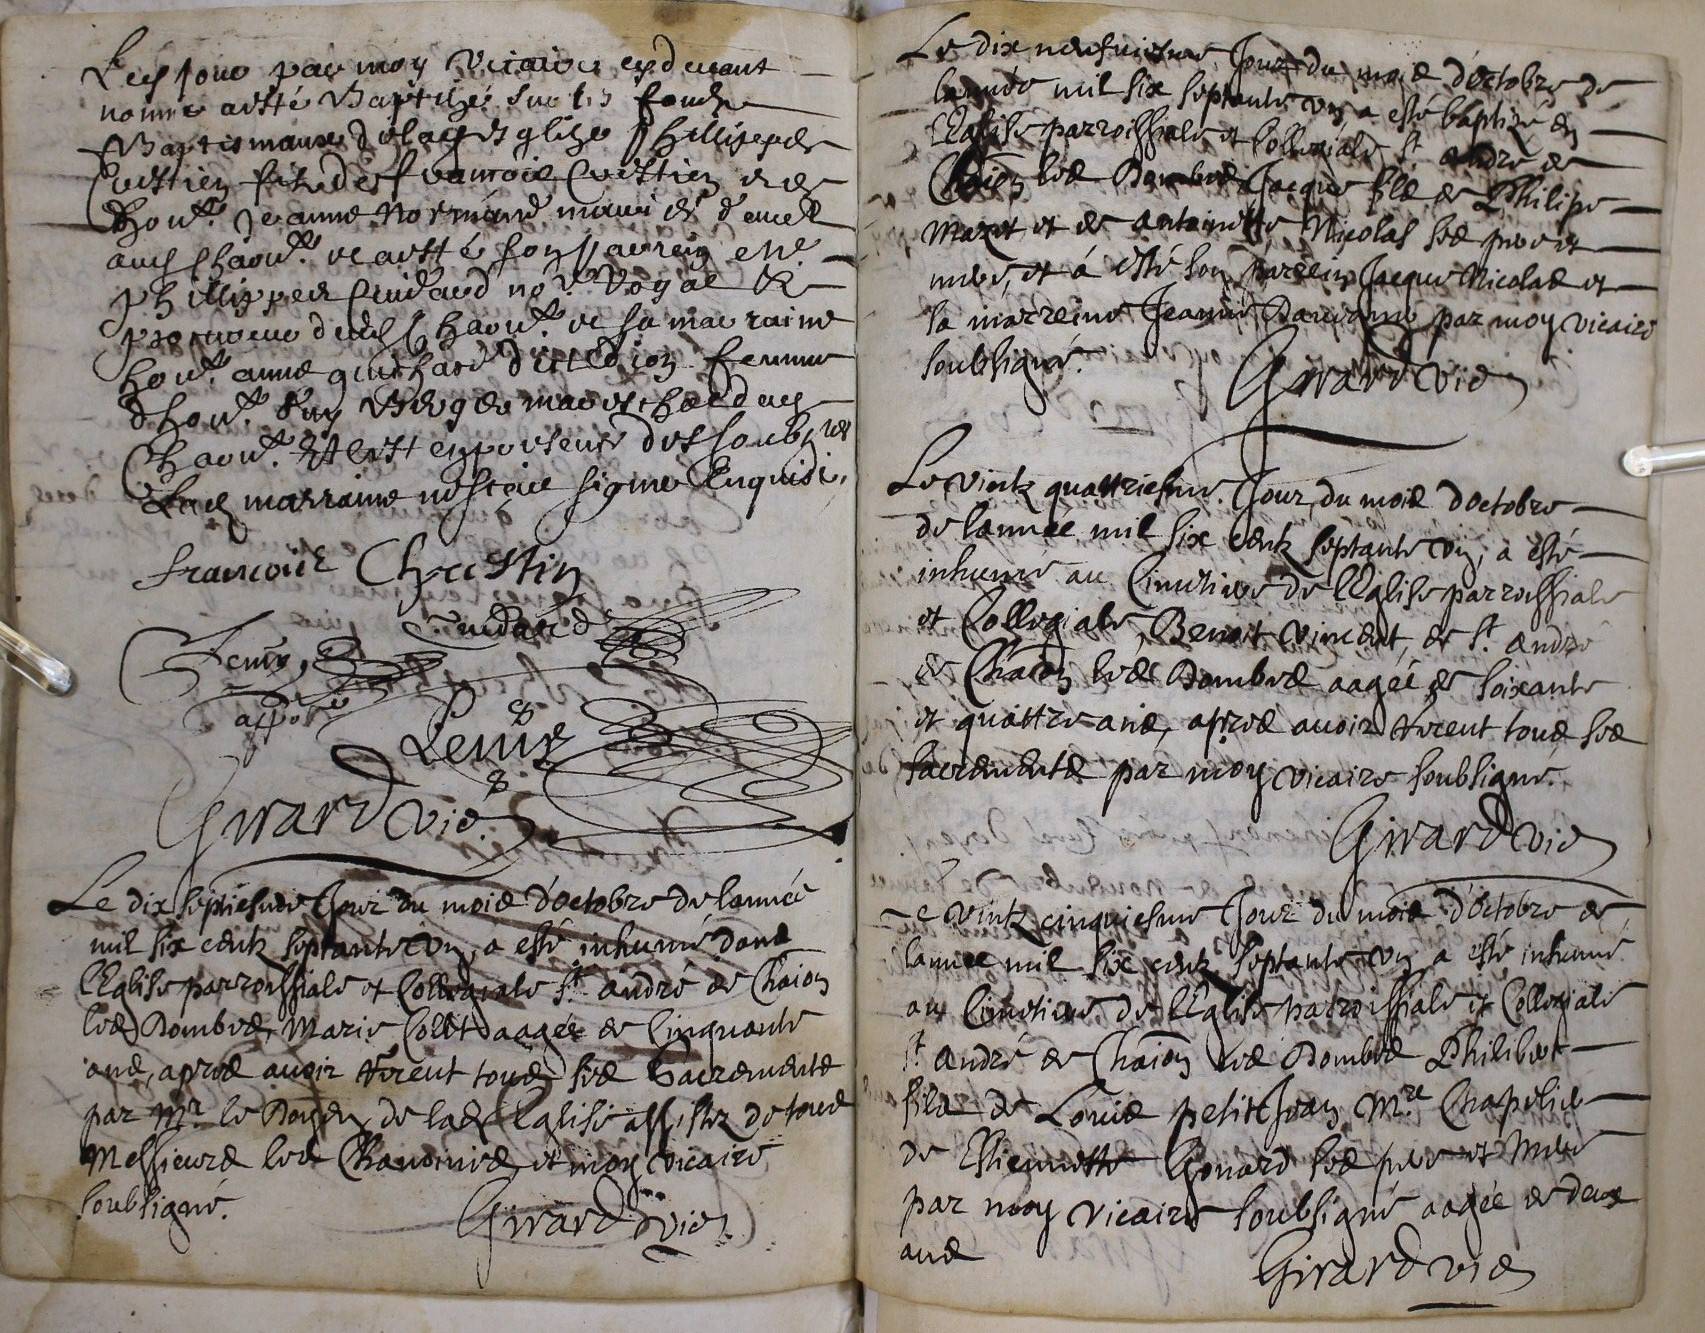 Led jour par moy vicaire cy devant
nommé a esté Baptizé sur les fonds
Baptismaux de lad esglize Phillippes
Crestien fils de françois Crestien et de
hon.^te Jeanne Normand mariés d'
aud Chaon. et a esté son parrein M.^e
Phillippes Cuidard no.^re Royal &
procureur dud Chaon. et sa marraine
hon.^te anne guichard ditte Dion femme
d'hon.^te Vergier mareschal dud
Chaon. Et c'est en presence des soubz.^nés
Lad marraine ne sçait signer Enquise.
françois Chrestin
Cuidard
appo
Girard vic.
Le dix septiesme Jour du mois d'octobre de l'année
mil six centz septante un, a esté inhumé dans
l'Eglise parroissiale et Collegiale S.^t andré de Chaon
les Dombes, Marie Collet aagée de Cinquante
ans, apres avoir receut tous ses Sacrements
par M.^r le Doyen de lad Eglise assistez de tous
Messieurs les Chanoines et moy vicaire
soubsigné.
Girard vic.
Le dix neufviesme Jour du mois d'octobre de
l'année mil six septante un a esté baptizé en
l'Eglise parroissiale et Collegiale S.^t andré de
Chaon les Dombes Jacque fils de Philipe
Mazet et de antoinette Nicolas ses pere et
mere, et á esté son parrein Jacque Nicolas et
sa marreine Jeanne par moy vicaire
soubsigné.
Girard vic
Le vintz quattriesme Jour du mois d'octobre
de l'année mil six centz septante un, a esté
inhumé au Cimetiere de l'Eglise parroissiale
et Collegiale, Benoit Vincent, de S.^t andré
de Chaon les Dombes aagée de soixante
et quattre ans, apres avoir receut tous ses
sacrements par moy vicaire soubsigné.
Girard vic
Le vintz cinquiesme Jour du mois d'octobre de
l'année mil six centz septante un a esté inhumé
au Cimetiere de l'Eglise parroissiale et Collegiale
S.^t andré de Chaon les Dombes Philibert
fils de Louis petitJean M.^re Chapelie
de Estiennette Gonard ses pere et mere
par moy vicaire soubsigné aagée de deux
ans
Girard vic